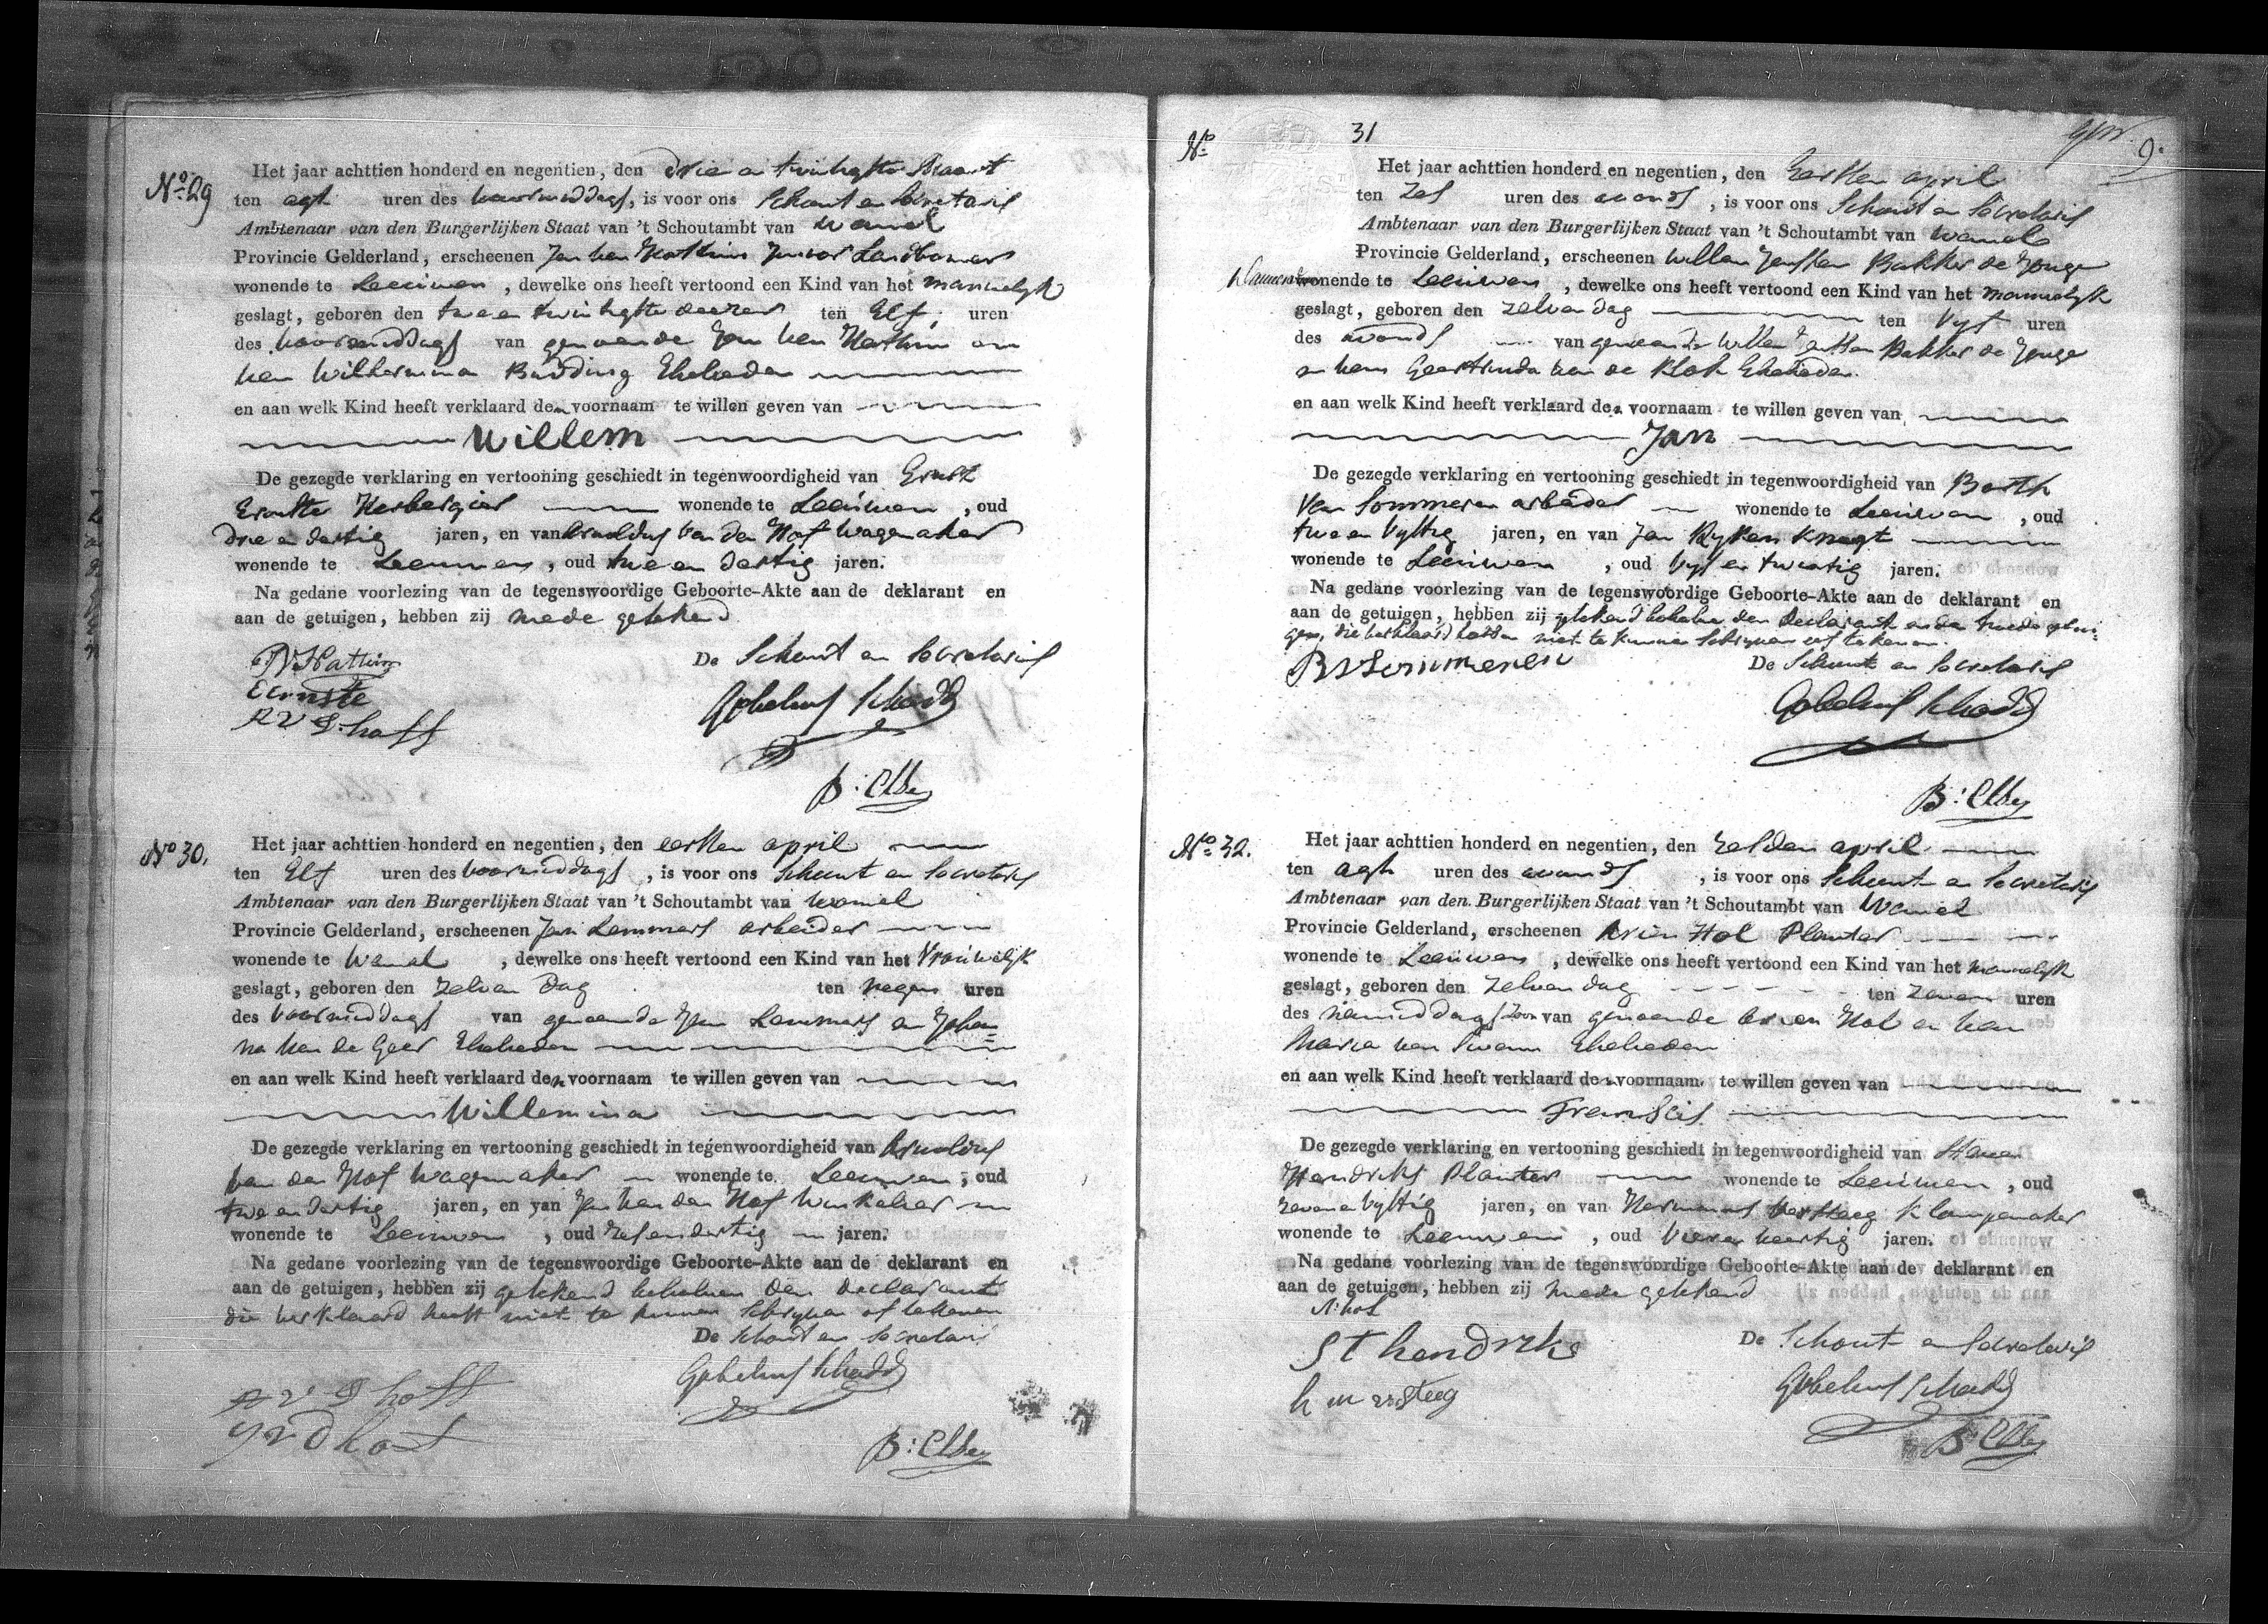 No. 29
Het jaar achttien honderd en negentien, den drie en twintigste Maart
ten agt uren des voormiddags, is voor ons Schout en Secretaris
Ambtenaar van den Burgerlijken Staat van 't Schoutambt van Wamel
Provincie Gelderland, erscheenen Jan van Junior Landbouwer
wonende te Leeuwen, dewelke ons heeft vertoond een Kind van het mannelyk
geslagt, geboren den twee en twintigste deezer ten Elf uren
des voormiddags van genoemde Jan van en
van Wilhermina Budding Ehelieden
en aan welk Kind heeft verklaard den voornaam te willen geven van
Willem
De gezegde verklaring en vertooning geschiedt in tegenwoordigheid van Ernst
Ernste Herbergier wonende te Leeuwen, oud
drie en dertig jaren, en van Arnoldus van den Hof Wagemaker
wonende te Leeuwen, oud twee en dertig jaren.
Na gedane voorlezing van de tegenswoordige Geboorte-Akte aan de deklarant en
aan de getuigen, hebben zij mede getekend
De Schout en Secretaris
E Ernste
A V D hoff
No 30.
Het jaar achttien honderd en negentien, den eersten april
ten Elf uren des voormiddags, is voor ons Schout en Secretaris
Ambtenaar van den Burgerlijken Staat van 't Schoutambt van Wamel
Provincie Gelderland, erscheenen Jan Lemmers arbeider
wonende te Wamel, dewelke ons heeft vertoond een Kind van het Vrouwelyk
geslagt, geboren den zelven dag ten negen uren
des voormiddags van genoemde Jan Lemmers en Johan=
na van de Geer Ehelieden
en aan welk Kind heeft verklaard den voornaam te willen geven van
Willemina
De gezegde verklaring en vertooning geschiedt in tegenwoordigheid van Arnoldus
van den Hof Wagemaker wonende te Leeuwen, oud
twee en dertig jaren, en van Jan van den Hof Winkelier
wonende te Leeuwen, oud zes en dertig jaren.
Na gedane voorlezing van de tegenswoordige Geboorte-Akte aan de deklarant en
aan de getuigen, hebben zij getekend behalven den declarant
die verklaard heeft niet te kunnen schryven of tekenen
De Schout en Secretaris
A V D hoff
J V D hof
No. 31
9.
Het jaar achttien honderd en negentien, den Eersten april
ten Zes uren des avonds, is voor ons Schout en Secretaris
Ambtenaar van den Burgerlijken Staat van 't Schoutambt van Wamel
Provincie Gelderland, erscheenen Willem Janssen Bakker de Jonge
wonende te Leeuwen, dewelke ons heeft vertoond een Kind van het mannelyk
geslagt, geboren den zelven dag ten Vyf uren
des avonds van genoemde Willem Janssen Bakker de Jonge
en van Geertruda van de Klok Ehelieden.
en aan welk Kind heeft verklaard den voornaam te willen geven van
Jan
De gezegde verklaring en vertooning geschiedt in tegenwoordigheid van Barth
van Sommeren arbeider wonende te Leeuwen, oud
twee en Vyftig jaren, en van Jan Ryken Knegt
wonende te Leeuwen, oud Vyf en twintig jaren.
Na gedane voorlezing van de tegenswoordige Geboorte-Akte aan de deklarant en
aan de getuigen, hebben zij getekend behalve den declarant en de tweede getui=
gen, die verklaard hebben niet te kunnen schryven of tekenen.
De Schout en Secretaris
B V Sommeren
No. 32.
Het jaar achttien honderd en negentien, den zesden april
ten agt uren des avonds, is voor ons Schout en Secretaris
Ambtenaar van den Burgerlijken Staat van 't Schoutambt van Wamel
Provincie Gelderland, erscheenen Arien Hol Planter
wonende te Leeuwen, dewelke ons heeft vertoond een Kind van het mannelyk
geslagt, geboren den zelven dag ten zeven uren
des namiddags Zoon van genoemde Arien Hol en van
Maria van Ehelieden
en aan welk Kind heeft verklaard den voornaam te willen geven van
Franscis
De gezegde verklaring en vertooning geschiedt in tegenwoordigheid van
Hendriks Planter wonende te Leeuwen, oud
zeven en Vyftig jaren, en van Hermanus Versteeg Klompemaker
wonende te Leeuwen, oud Vier en veertig jaren.
Na gedane voorlezing van de tegenswoordige Geboorte-Akte aan de deklarant en
aan de getuigen, hebben zij mede getekend
A: hol
De Schout en Secretaris
St hendriks
h m versteeg